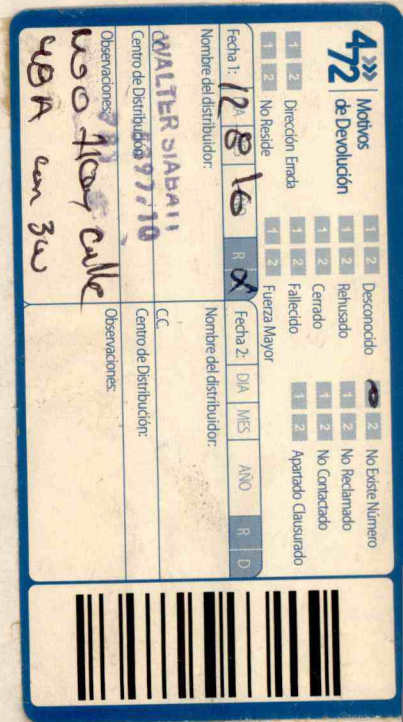 472
Motivos
de Devolución
1 2 Desconocido
1 2 Rehusado
1 2 Cerrado
1 2 Fallecido
1 2 Fuerza Mayor
2 No Existe Número
1 2 No Reclamado
1 2 No Contactado
1 2 Apartado Clausurado
1 2 Dirección Errada
1 2 No Reside
Fecha 1: 12 8 16 R X
Nombre del distribuidor:
WALTER SIABATT
Centro de Distribución:
Observaciones:
NO Hay calle
48A con 3W
Fecha 2: DIA MES AÑO R D
Nombre del distribuidor:
C.C.
Centro de Distribución:
Observaciones: